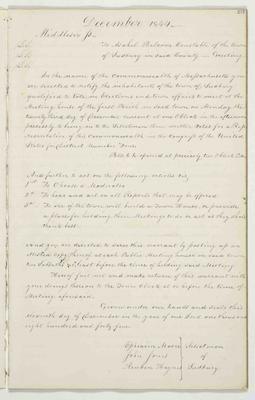 December 1844
Middlesex ss. To Asahel Balcom Constable of the town
of Sudbury in said County — Greeting
In the name of the Commonwealth of Massachusetts you
are directed to notify the inhabitants of the town of Sudbury
qualified to Vote in Elections and town affairs to meet at the
Meeting house of the first Parish in said town on Monday the
twenty third day of December current at one Oclock in the afternoon
precisely to bring in to the Selectmen their written Votes for a Rep-
resentative of the Commonwealth in the Congress of the United
States for District Number Four
Polls to be opened at precisely two Oclock P.M.
And further to act on the following articles viz,
1st To Choose a Moderator
2nd To hear and act on all Reports that may be offered
3rd To see if the town will build a Town House, or provide
a place for holding their Meetings to do or act as they shall
think best.
And you are directed to serve this warrant by posting up an
Attested copy thereof at each Public Meeting house in said town
two Sabbaths at least before the time of holding said Meeting
Hereof fail not and make return of this warrant with
your doings thereon to the Town Clerk at or before the time of
Meeting aforesaid.
Given under our hands and seals this
eleventh day of December in the year of our Lord one thousand
eight hundred and forty four
Ephraim Moore Selectmen
John Jones of
Reuben Haynes Sudbury.